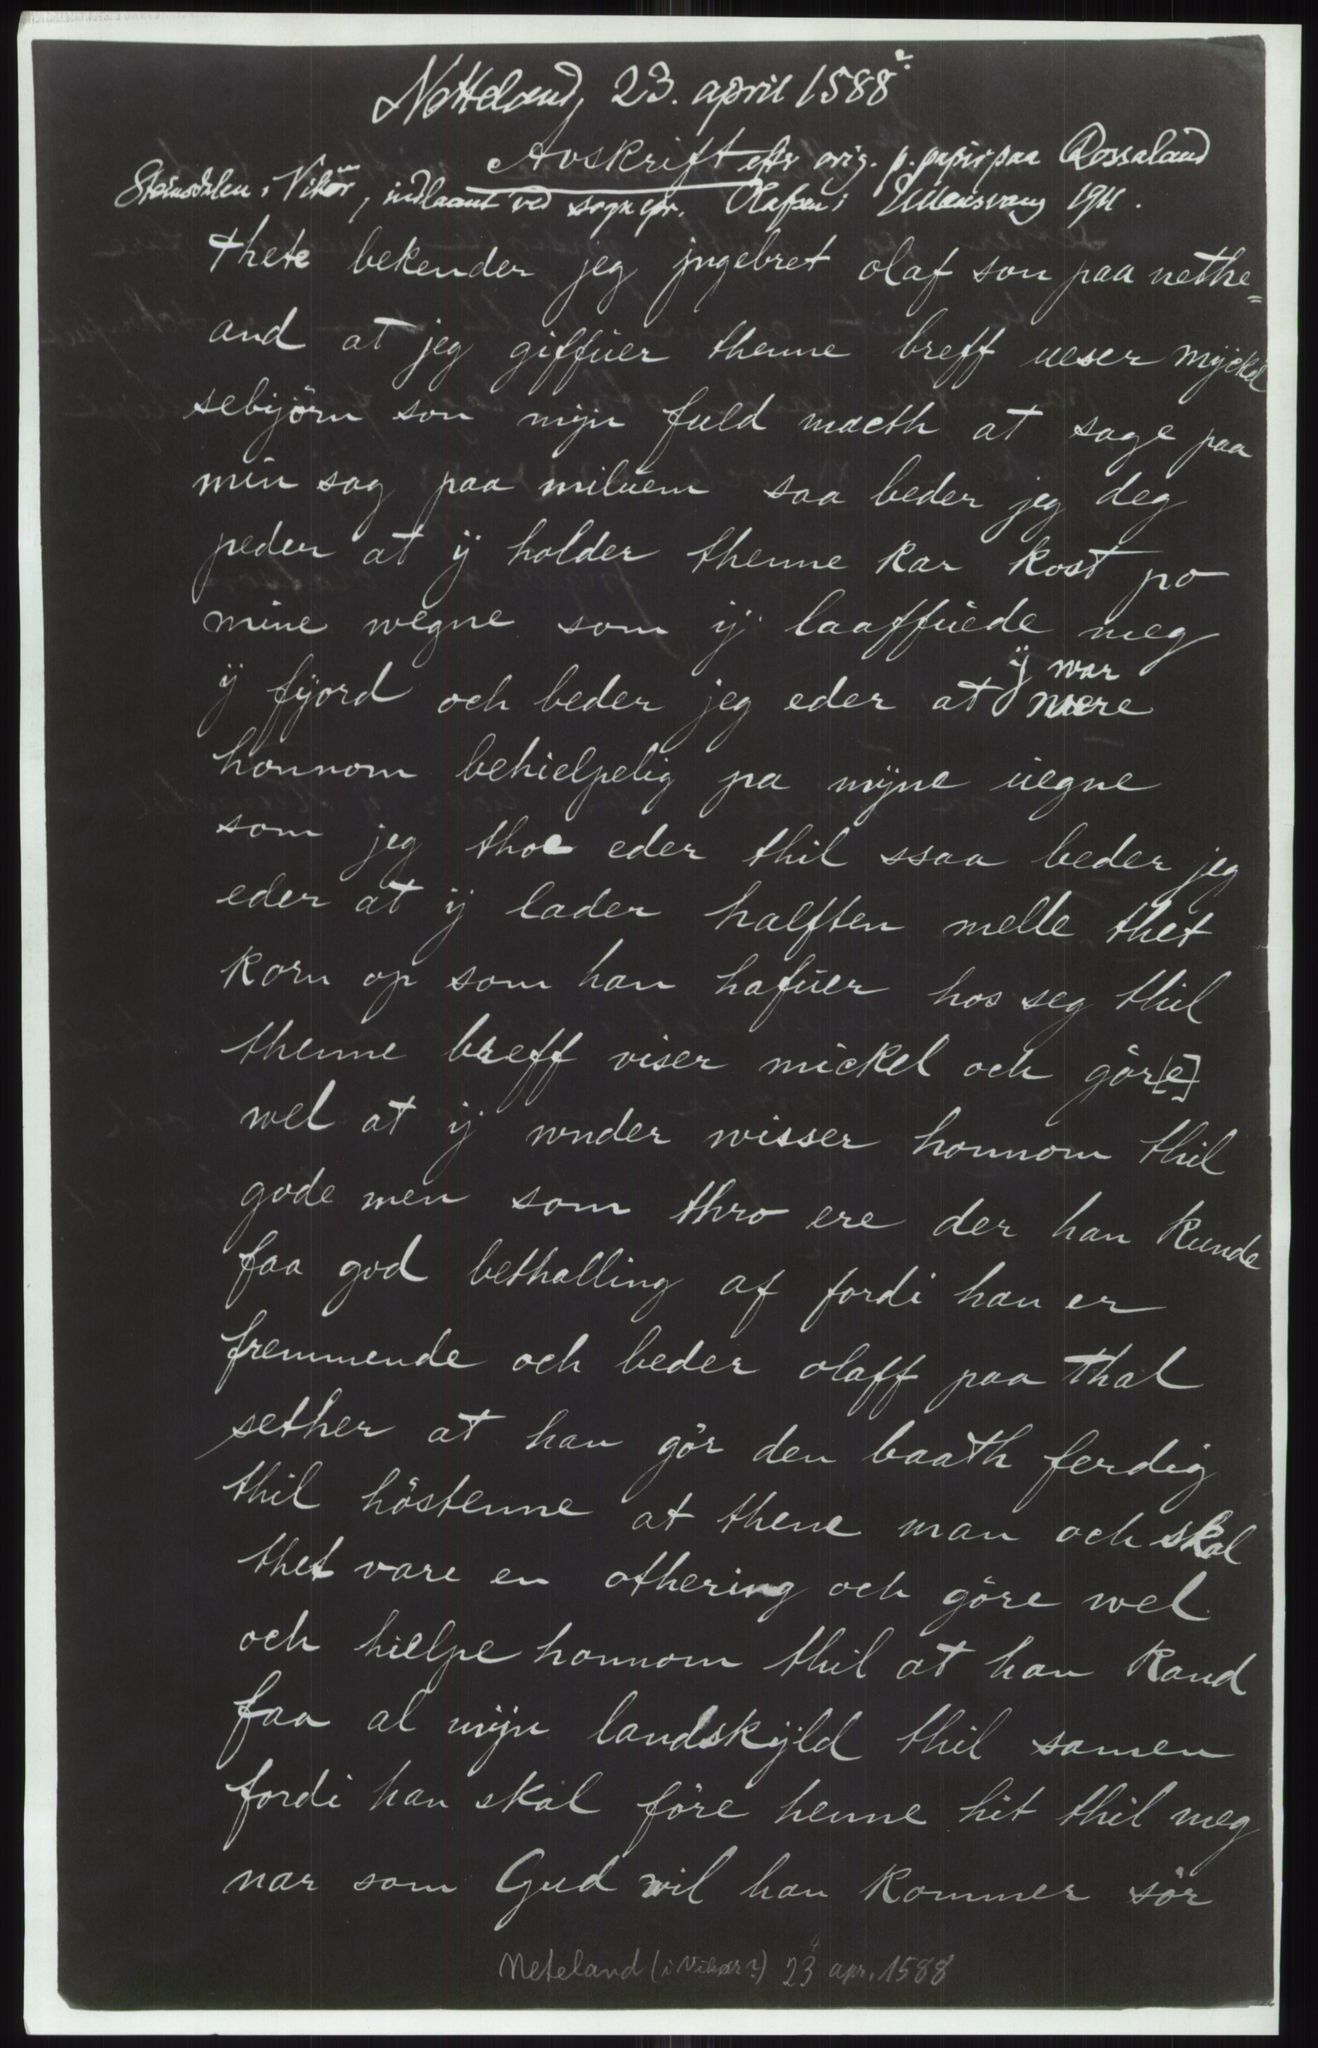 Netteland, 23. april 1588?
Avskrift efter orig. p. papir paa Rossaland
Steinsdalen i Vikør, indlaant ved sogepr. Olafsen i Ullensvang 1911.
thete bekender jeg jngebret olaf son paa nethe=
and at jeg giffuer thenne breff ueser myckel
sebyörn son myn fuld macth at sage paa
min sag paa miluem saa beder jeg deg
peder at ÿ holder thenne kar kost po
mine wegne som ÿ laaffuede meg
ÿ fyord och beder jeg eder at ÿ war mere
honnom behielpelig pa myne uegne
som jeg thoc eder thil ssaa beder jeg
eder at ÿ lader halften melle thet
korn op som han hafuer hos seg thil
thenne breff viser mickel och gör[e]
wel at ÿ wnder wisser honnom thil
gode men som thro ere der han kunde
faa god bethalling af fordi han er
fremmende och beder olaff paa thal
sether at han gör den baath ferdig
thil höstenne at thene man och skal
thet vare en othering och göre wel
och hielpe honnom thil at han kand
faa al myn landskyld thil samen
fordi han skal före henne hit thil meg
nar som Gud wil han kommer sör
Neteland (i Vikør?) 23 apr. 1588